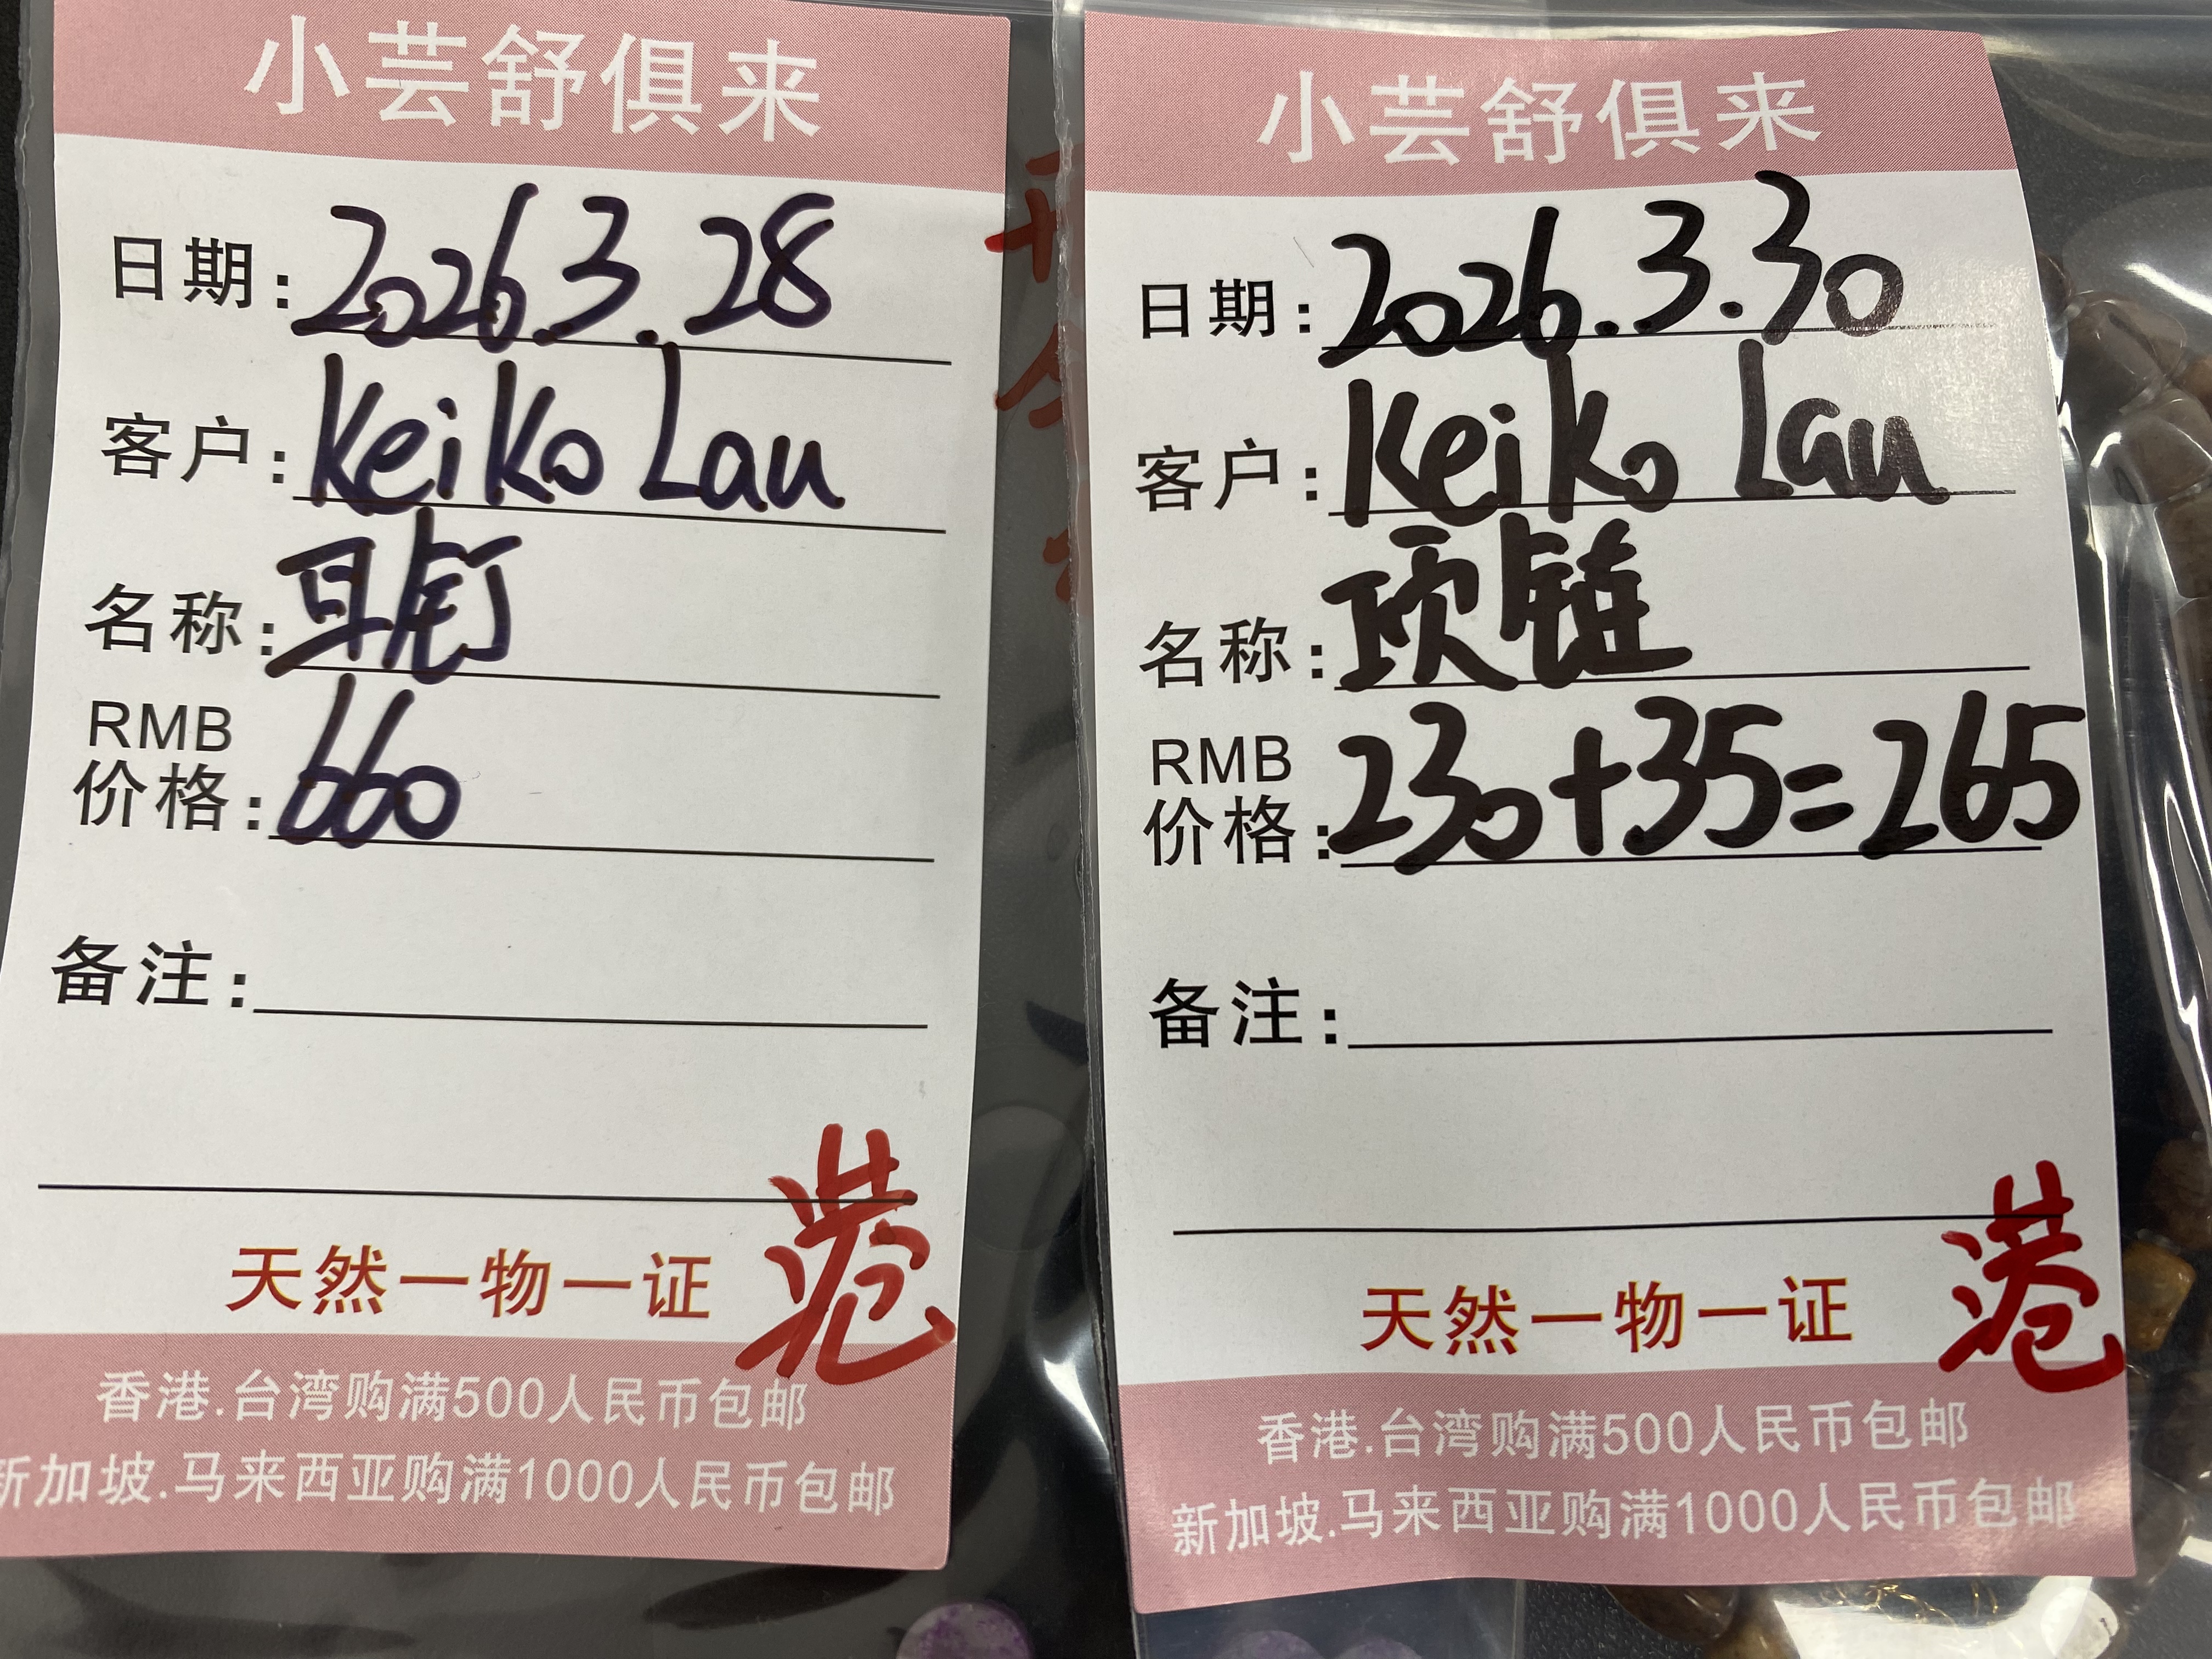 小芸舒俱来
日期: 2026.3.28
客户: Keiko Lau
名称: 耳钉
RMB
价格: 660
备注:
港
天然一物一证
香港.台湾购满500人民币包邮
新加坡.马来西亚购满1000人民币包邮
小芸舒俱来
日期: 2026.3.30
客户: Keiko Lau
名称: 项链
RMB
价格: 230+35=265
备注:
港
天然一物一证
香港.台湾购满500人民币包邮
新加坡.马来西亚购满1000人民币包邮